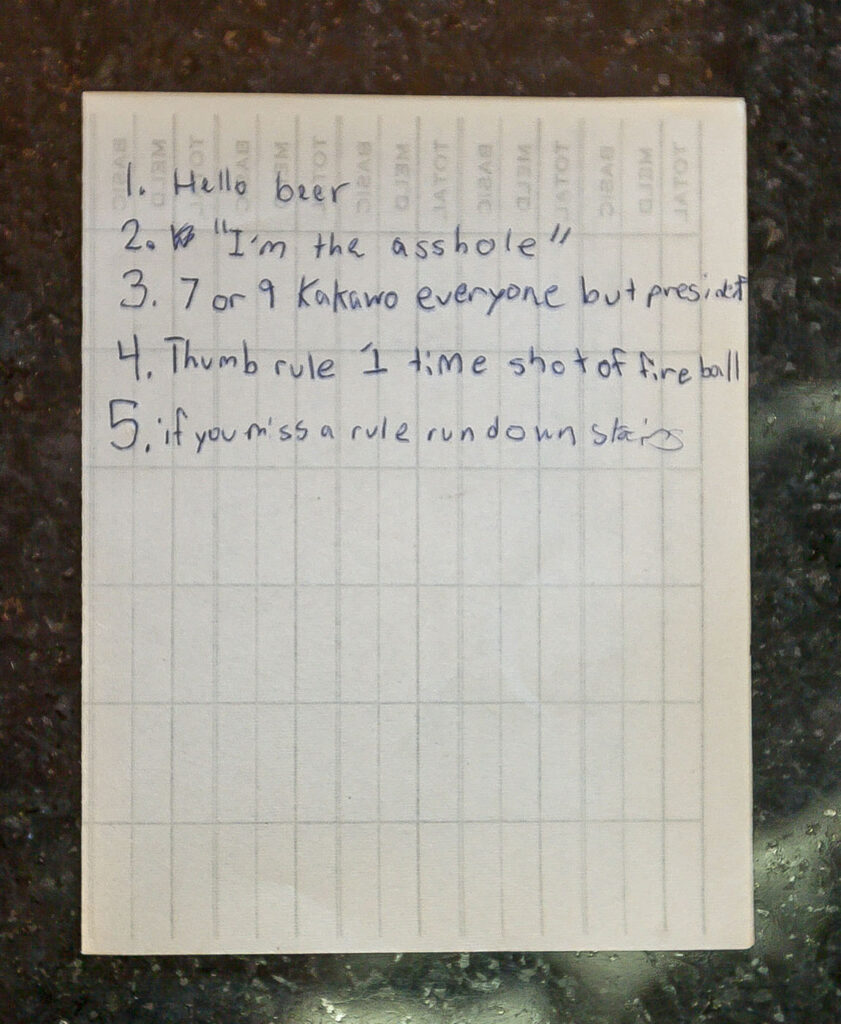 BASIC MELD TOTAL BASIC MELD TOTAL BASIC MELD TOTAL BASIC MELD TOTAL BASIC MELD TOTAL
1. Hello beer
2. "I'm the asshole"
3. 7 or 9 Kakawo everyone but presidet
4. Thumb rule 1 time shot of fireball
5. if you miss a rule run down stairs